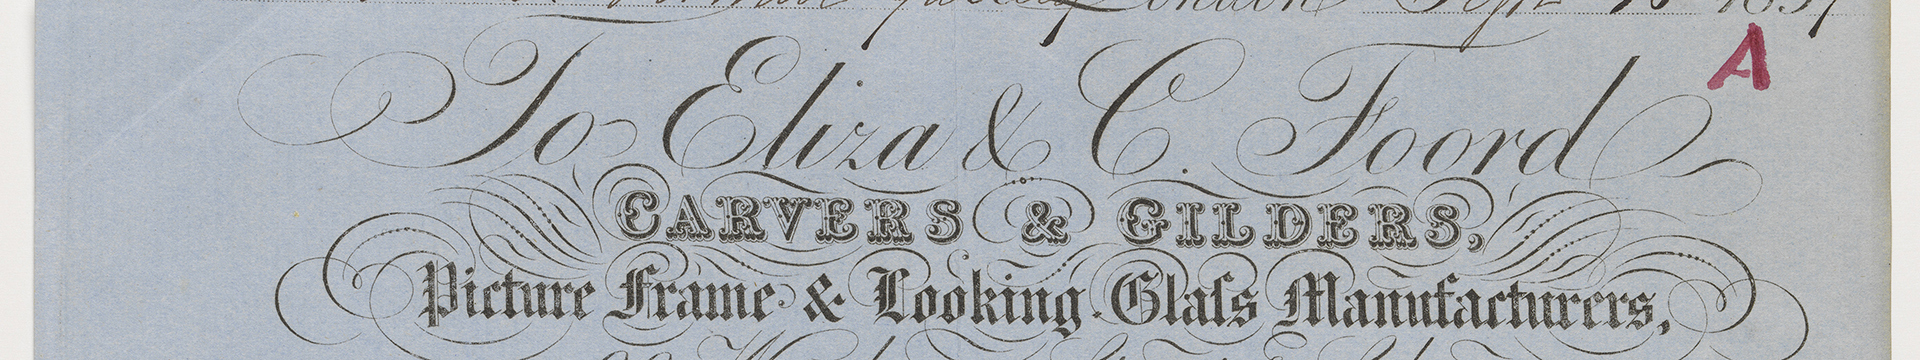 London Sept
A
To Eliza & C. Foord
CARVERS & GILDERS,
Picture Frame & Looking-Glaſs Manufacturers,